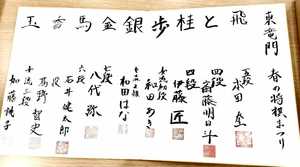 東竜門
春の将棋まつり
飛
五段
本田奎
と
四段
斎藤明日斗
桂
四段
伊藤匠
歩
女流初段
和田あき
銀
和田はな
金
七段
八代弥
馬
六段
石井健太郎
香
高野智史
王
女流三段
加藤桃子